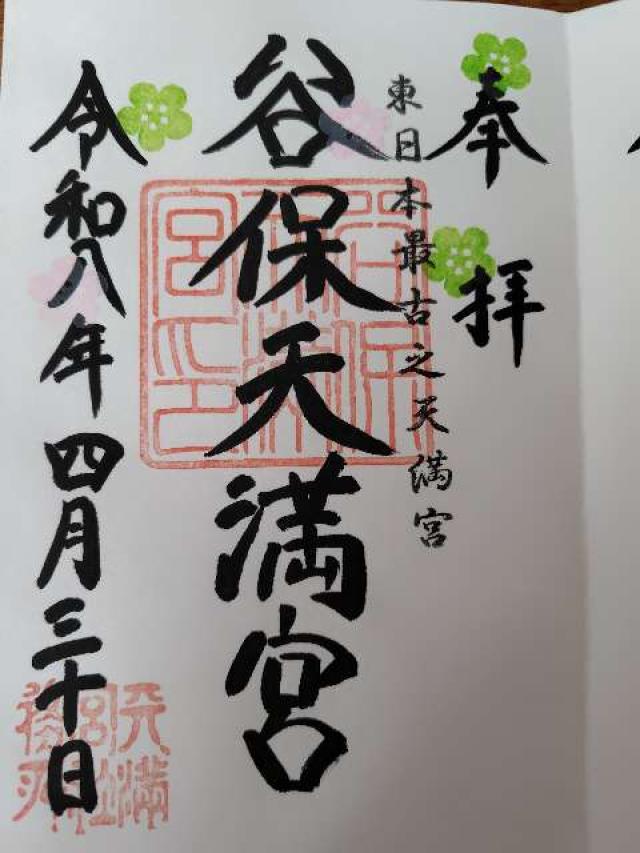 奉拝
東日本最古之天満宮
谷保天満宮
令和八年四月三十日